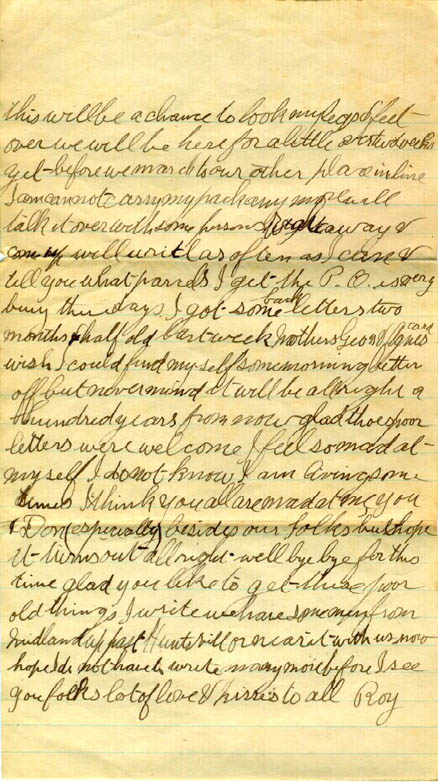 this will be a chance to look my legs & feet
over we will be here for a little over two weeks
yet before we march to our other place in line
I am cannot carry my pack any more will
talk it over with some person right away &
will write as often as I can &
tell you what parcels I get the P. O. is very
busy thes days I got some back letters two
months & half old last week Mothers Geos & Agnes card
wish I could find my self some morning better
off but never mind it will be all right a
hundred years from now glad thoes poor
letters were welcome I feel so mad at
my self I do not know I am living some
times I think you all are mad at me you
& Don (especially) besides our folks but hope
it turns out all right well bye bye for this
time glad you like to get these poor
old things I write we have some men from
Midland up past Huntsvill or near it with us now
hope I do not have to write many more before I see
you folks lots of love & kisses to all Roy